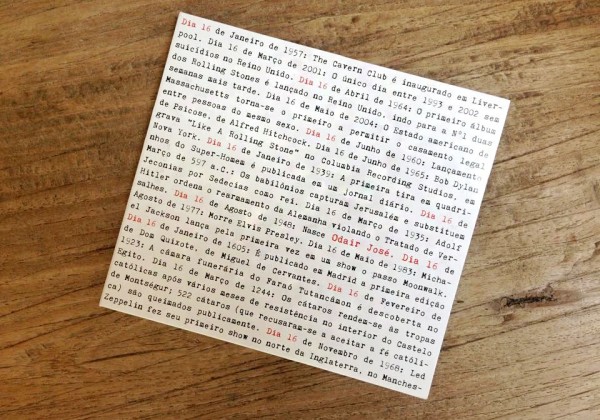 Dia 16 de Janeiro de 1957: The Cavern Club é inaugurado em Liver-
pool. Dia 16 de Março de 2001: O único dia entre 1993 e 2002 sem
suicídios no Reino Unido. Dia 16 de Abril de 1964: O primeiro álbum
dos Rolling Stones é lançado no Reino Unido, indo para a Nº1 duas
semanas mais tarde. Dia 16 de Maio de 2004: O Estado americano de
Massachusetts torna-se o primeiro a permitir o casamento legal
entre pessoas do mesmo sexo. Dia 16 de Junho de 1960: Lançamento
de Psicose, de Alfred Hitchcock. Dia 16 de Junho de 1965: Bob Dylan
grava "Like A Rolling Stone" no Columbia Recording Studios, em
Nova York. Dia 16 de Janeiro de 1939: A primeira tira em quadri-
nhos do Super-Homem é publicada em um jornal diário. Dia 16 de
Março de 597 a.C.: Os Babilónios capturam Jerusalém e substituem
Jeconias por Sedecias como rei. Dia 16 de Março de 1935: Adolf
Hitler ordena o rearmamento da Alemanha violando o Tratado de Ver-
salhes. Dia 16 de Agosto de 1948: Nasce Odair José. Dia 16 de
Agosto de 1977: Morre Elvis Presley. Dia 16 de Maio de 1983: Micha-
el Jackson lança pela primeira vez em um show o passo Moonwalk.
Dia 16 de Janeiro de 1605: É publicado em Madrid a primeira edição
de Dom Quixote, de Miguel de Cervantes. Dia 16 de Fevereiro de
1923: A câmara funerária do Faraó Tutancâmon é descoberta no
Egito. Dia 16 de Março de 1244: Os cátaros rendem-se às tropas
católicas após vários meses de resistência no interior do Castelo
de Montségur; 522 cátaros (que recusaram-se a aceitar a fé católi-
ca) são queimados publicamente. Dia 16 de Novembro de 1968: Led
Zeppelin fez seu primeiro show no norte da Inglaterra, no Manches-